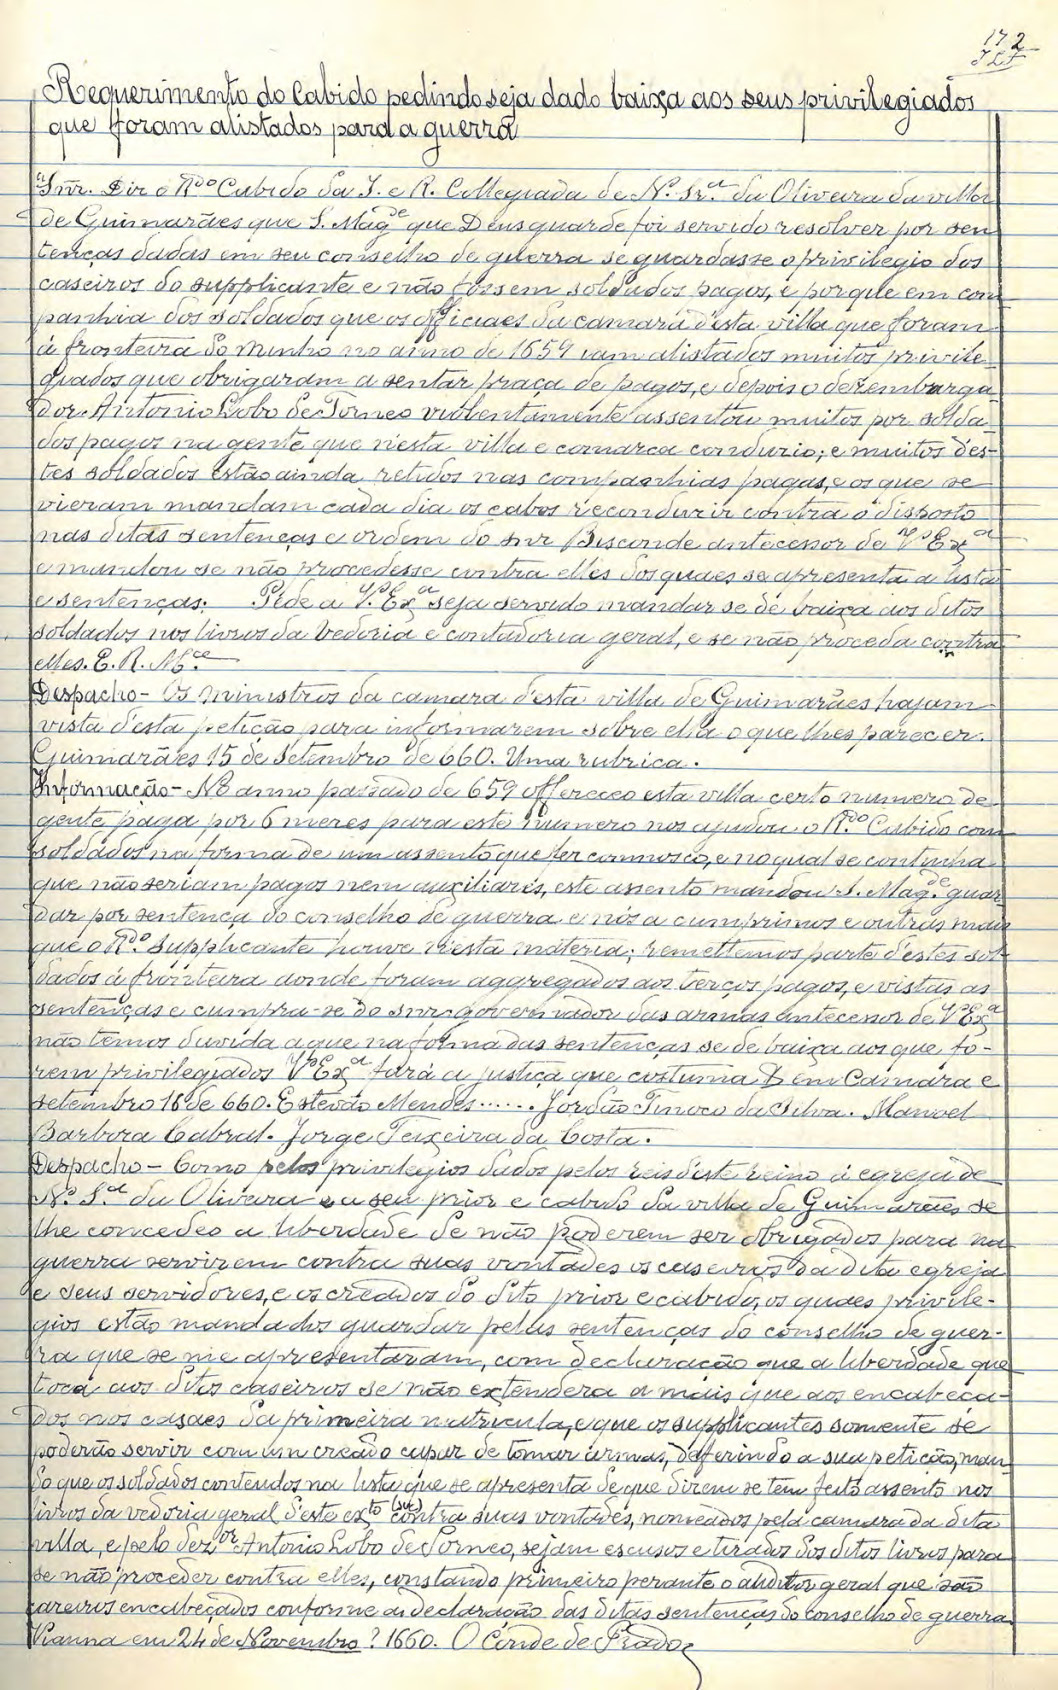 172
Requerimento do Cabido pedindo seja dado baixa aos seus privilegiados
que foram alistados para a guerra
Snr. Diz o R.do Cabido da I. e R. Collegiada de N.ª Sr.ª da Oliveira da villa
de Guimarães que S. Mag.de que Deus guarde foi servido resolver por sen
tenças dadas em seu conselho de guerra se guardasse o privilegio dos
caseiros do supplicante e não fossem soldados pagos, e porque em com
panhia dos soldados que os officiaes da camara d'esta villa que foram
á fronteira do Minho no anno de 1659 iam alistados muitos privile
giados que obrigaram a sentar praça de pagos, e depois o dezembarga
dor Antonio Lobo de Torneo violentamente assentou muitos por solda
dos pagos na gente que n'esta villa e comarca conduzio; e muitos d'es-
tes soldados estão ainda retidos nas companhias pagas, e os que se
vieram mandam cada dia os cabos reconduzir contra o disposto
nas ditas sentenças e ordem do snr Bisconde antecessor de V.ª Ex.ª
e mandou se não procedesse contra elles dos quaes se apresenta a lista
e sentenças. Pede a V.ª Ex.ª seja servido mandar se dê baixa aos ditos
soldados nos livros da vedoria e contadoria geral, e se não proceda contra
elles. E. R. M.ce
Despacho – Os ministros da camara d'esta villa de Guimarães hajam
vista d'esta petição para informarem sobre ella o que lhes parecer.
Guimarães 15 de Setembro de 660. Uma rubrica.
Informação – No anno passado de 659 offereceo esta villa certo numero de
gente paga por 6 mezes para este numero nos ajudou o R.do Cabido com
soldados na forma de um assento que fez comnosco, e no qual se continha
que não seriam pagos nem auxiliares, este assento mandou S. Mag.de guar
dar por sentença do conselho de guerra e nós a cumprimos e outras mais
que o R.do supplicante houve n'esta materia; remettemos parte d'estes sol-
dados á fronteira aonde foram aggregados aos terços pagos, e vistas as
sentenças e cumpra-se do snr. governador das armas antecessor de V.ª Ex.ª
não temos duvida a que na forma das sentenças se dê baixa aos que fo-
rem privilegiados V.ª Ex.ª fará a justiça que costuma D em Camara e
setembro 16 de 660. Estevão Mendes...... Jordão Tinoco da Silva. Manoel
Barboza Cabral. Jorge Teixeira da Costa.
Despacho – Como pelos privilegios dados pelos reis d'este reino á egreja de
N.ª S.ª da Oliveira e a seu prior e cabido da villa de Guimarães se
lhe concedeo a liberdade de não poderem ser obrigados para na
guerra servirem contra suas vontades os caseiros da dita egreja
e seus servidores, e os creados do dito prior e cabido, os quaes privile-
gios estão mandados guardar pelas sentenças do conselho de guer-
ra que se me apresentaram, com declaração que a liberdade que
toca aos ditos caseiros se não extendera a mais que aos encabeça-
dos nos casaes da primeira matricula, e que os supplicantes somente se
poderão servir com um creado capaz de tomar armas, deferindo a sua petição, man
do que os soldados contendos na lista que se apresenta de que dizem se tem feito assento nos
livros da vedoria geral d'este ex.to (sic) contra suas vontades, nomeados pela camara da dita
villa, e pelo dez.or Antonio Lobo de Torneo, sejam escusos e tirados dos ditos livros para
se não proceder contra elles, constando primeiro perante o auditor geral que são
cazeiros encabeçados conforme a declaração das ditas sentenças do conselho de guerra
Vianna em 24 de Novembro ? 1660. O Conde de Prado